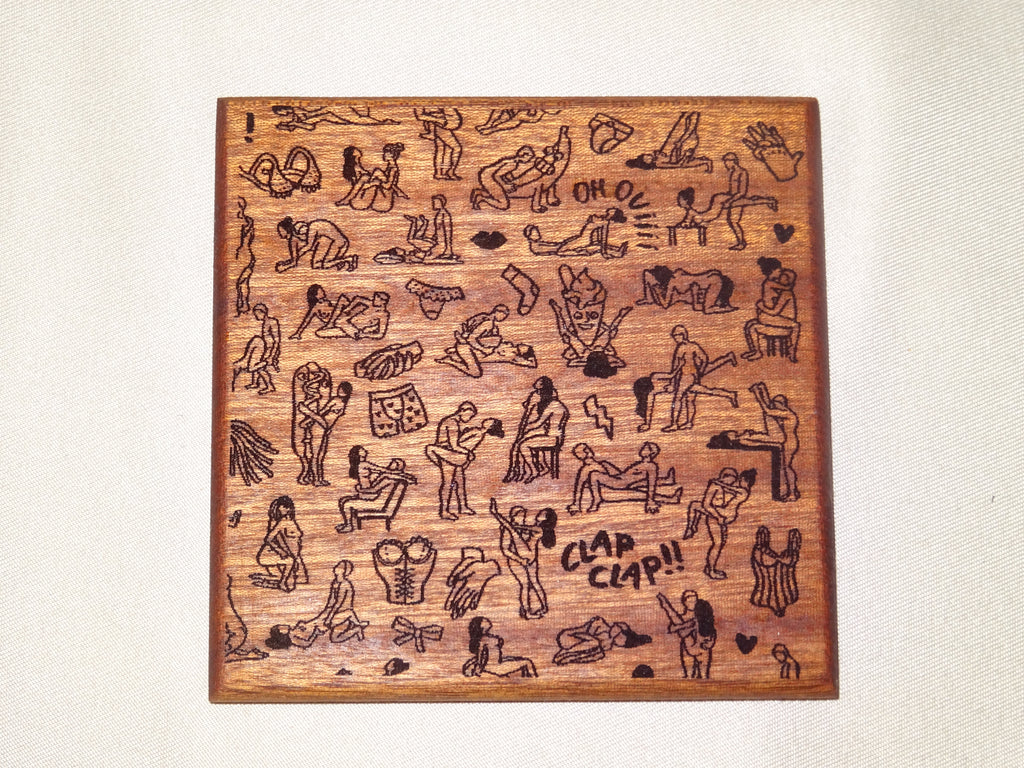 !
OH OUIII
CLAP
CLAP!!